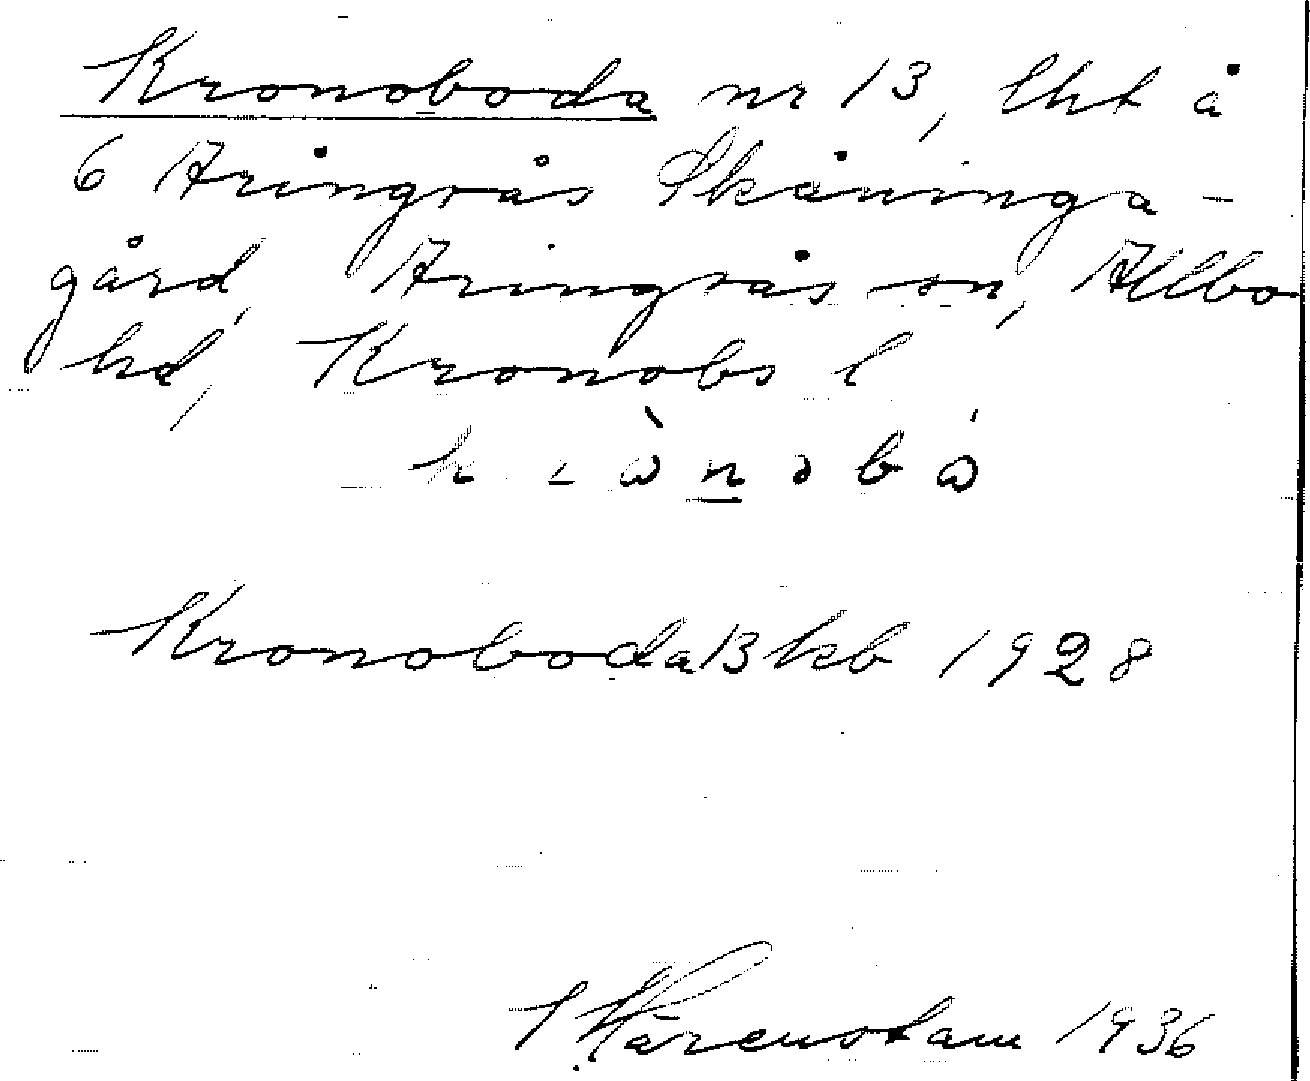 Kronoboda nr 13, lht å
6 Aringsås Skåninga-
gård, Aringsås sn, Allbo
hd, Kronobs l
Kronoboda 13 kb 1928
Härenstam 1936